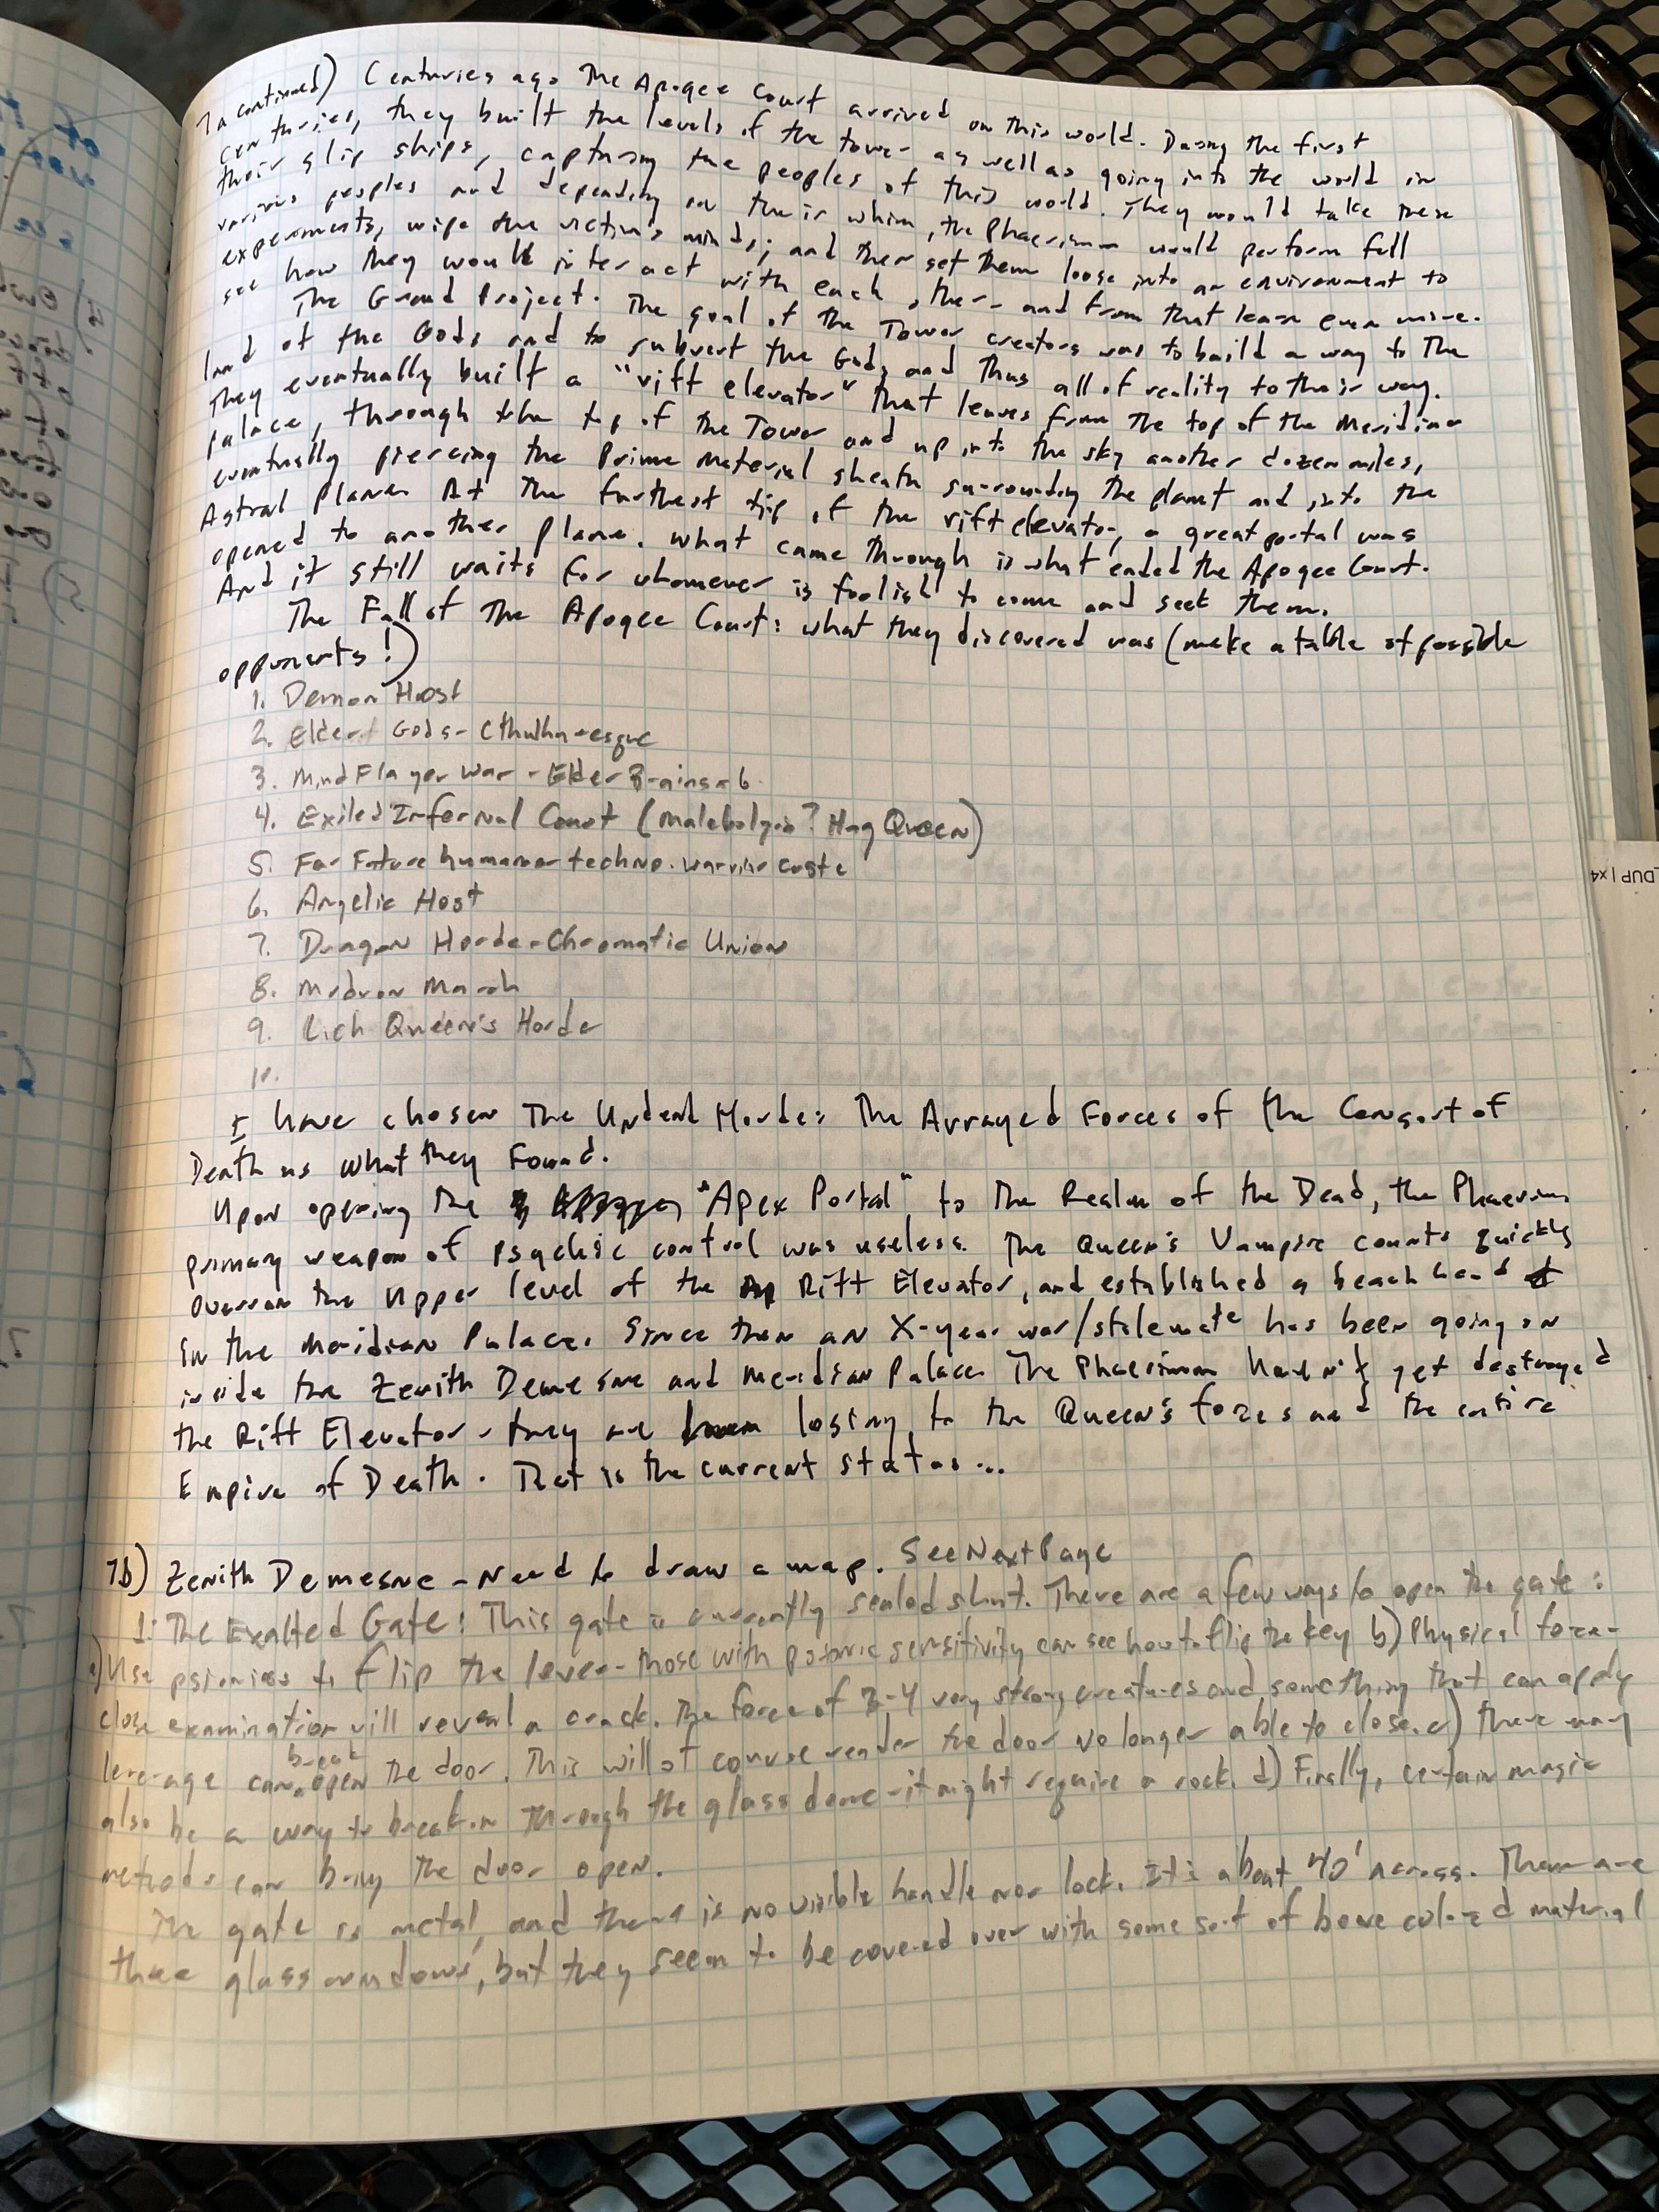 7a continued) Centuries ago The Apogee Court arrived on this world. During the first
centuries, they built the levels of the tower as well as going into the world in
their slip ships, capturing the peoples of this world. They would take these
various peoples and depending on their whim, the Phaerimm would perform fell
experiments, wipe the victims minds; and then set them loose into an environment to
see how they would interact with each other - and from that learn even more.
The Grand Project. The goal of the Tower creators was to build a way to The
land of the Gods and to subvert the Gods and Thus all of reality to their way.
They eventually built a "rift elevator" that leaves from the top of the Meridian
palace, through the top of the Tower and up into the sky another dozen miles,
eventually piercing the Prime Material sheath surrounding the planet and into the
Astral Plane. At the furthest tip of the rift elevator, a great portal was
opened to another plane. What came through is what ended the Apogee Court.
And it still waits for whomever is foolish to come and seek them.
The Fall of The Apogee Court: what they discovered was (make a table of possible
opponents!)
1. Demon Host
2. Eldert Gods - Cthulhu-esque
3. Mind Flayer War - Elder Brains
4. Exiled Infernal Court (Malebolgia? Hag Queen)
5. Far Future human techno-warrior caste
6. Angelic Host
7. Dragon Horde - Chromatic Union
8. Modron March
9. Lich Queen's Horde
10.
I have chosen The Undead Horde: The Arrayed Forces of the Consort of
Death as what they Found.
Upon opening The "Apex Portal" to The Realm of the Dead, the Phaerimm
primary weapon of psychic control was useless. The Queen's Vampire counts quickly
overran the Upper level of the Rift Elevator, and established a beach head
in the Meridian Palace. Since then an X-year war/stalemate has been going on
inside the Zenith Demesne and Meridian Palace. The Phaerimm haven't yet destroyed
the Rift Elevator - they are losing to the Queen's forces and the entire
Empire of Death. That is the current status...
7b) Zenith Demesne - Need to draw a map. See Next Page
1: The Exalted Gate: This gate is currently sealed shut. There are a few ways to open the gate:
a) Use psionics to flip the lever - those with psionic sensitivity can see how to flip the key b) Physical force -
close examination will reveal a crack. The force of 3-4 very strong creatures and something that can apply
leverage can break open the door. This will of course render the door no longer able to close. c) There may
also be a way to break in through the glass dome - it might require a rock. d) Finally, certain magic
methods can bring the door open.
The gate is metal, and there is no visible handle nor lock. It is about 40' across. There are
three glass windows, but they seem to be covered over with some sort of bone colored material